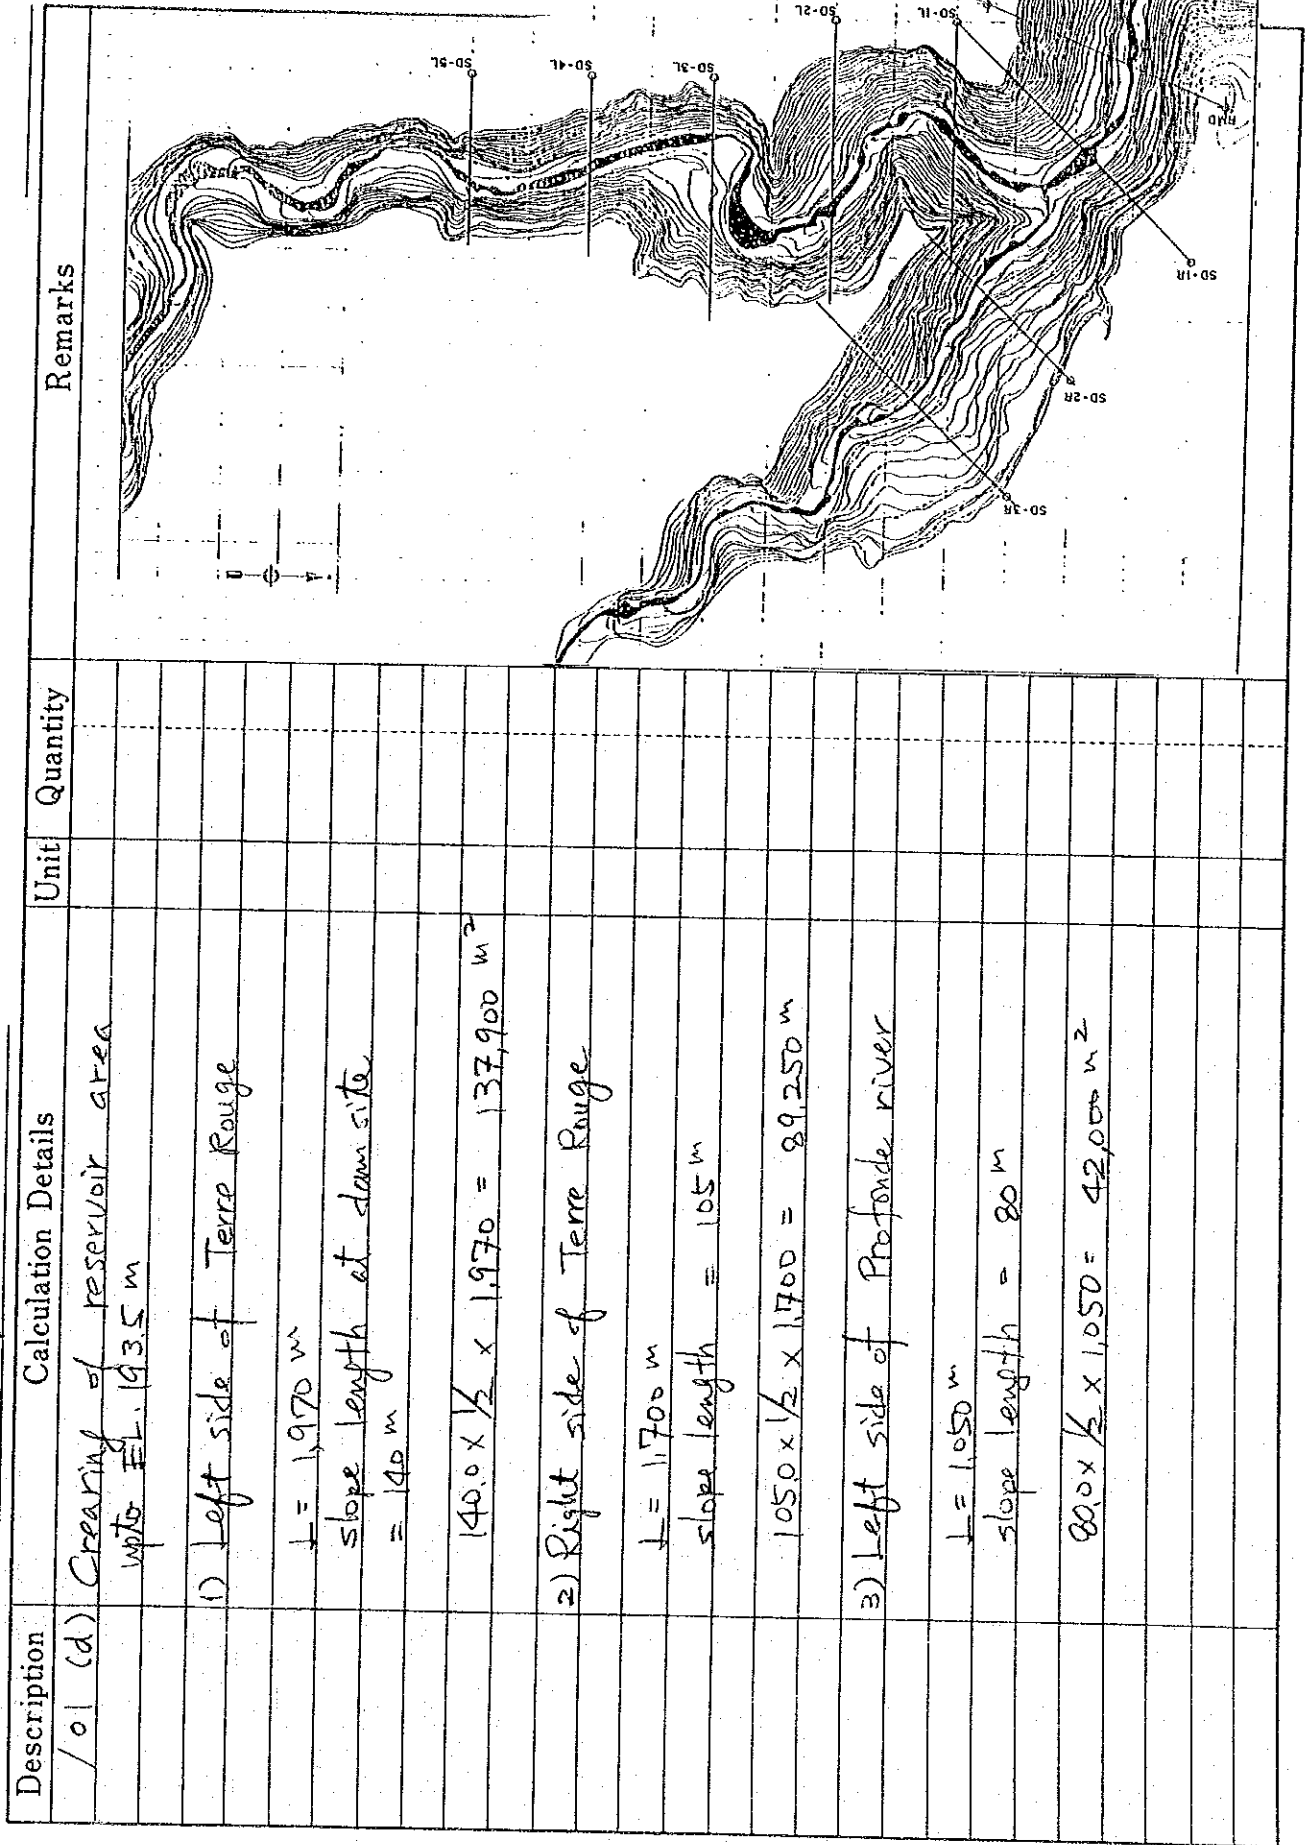 Description Calculation Details Unit Quantity Remarks
101 (d) Crearing of reservoir area
upto EL. 193.5 m
1) Left side of Terre Rouge
L = 1,970 m
slope length at dam site
= 140 m
140.0 x 1/2 x 1,970 = 137,900 m²
2) Right side of Terre Rouge
L = 1,700 m
slope length = 105 m
105.0 x 1/2 x 1,700 = 89,250 m
3) Left side of Profonde river
L = 1,050 m
slope length = 80 m
80.0 x 1/2 x 1,050 = 42,000 m²
SD-5L
SD-4L
SD-3L
SD-2L
SD-1L
SD-1R
SD-2R
SD-3R